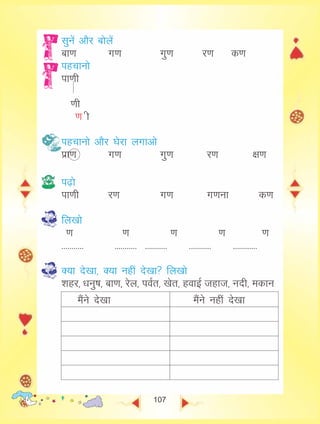 सुनें और बोलें
बाण गण गुण रण कण
पहचानो
पाणी
णी
ण ी
पहचानो और घेरा लगाओ
प्राण गण गुण रण क्षण
पढ़ो
पाणी रण गण गणना कण
लिखो
ण ण ण ण ण
........... ........... ........... ........... ...........
क्या देखा, क्या नहीं देखा? लिखो
शहर, धनुष, बाण, रेल, पर्वत, खेत, हवाई जहाज, नदी, मकान
मैंने देखा मैंने नहीं देखा
107